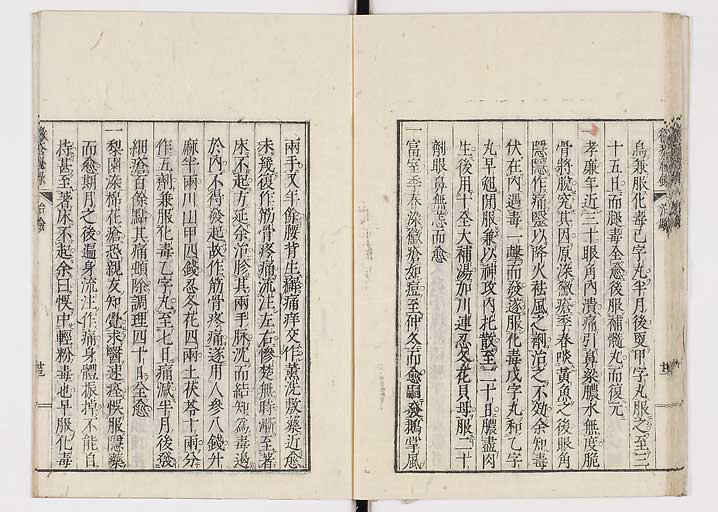 烏兼服化毒已字丸半月後更甲字丸服之至三
十五日而腿毒全愈後服補髓丸而復元
一孝廉年近三十眼角內潰痛引鼻梁膿水無度脆
骨將脫究其因原深黴瘡季春啖黃魚之後眼角
隱隱作痛醫以降火祛風之劑治之不効余知毒
伏在內遇毒一擊而發遂服化毒戊字丸和乙字
丸早短間服兼以神攻內托散至二十日膿盡肉
生後用十全大補湯加川連忍冬花貝母服二十
劑眼鼻無恙而愈
一富室季春深黴瘡如痘至仲冬而愈嗣發鵝掌風
兩手又半餘腰背生癬痛痒交作薰洗敷藥近愈
未幾復作筋骨疼痛流注左右慘楚無時漸至著
床不起方延余治胗其兩手脉沈而結知為毒遏
於內不得發越故作筋骨疼痛遂用人參八錢升
麻半兩川山甲四錢忍冬花四兩土茯苓十兩分
作五劑兼服化毒乙字丸至七日痛減半月後發
細瘡百餘點其痛頓除調理四十日全愈
一梨園深棉花瘡恐親友知覺求醫速痊悞服隱藥
而愈期月之後遍身流注作痛身體振掉不能自
持甚至著床不起余曰悞中輕粉毒也早服化毒